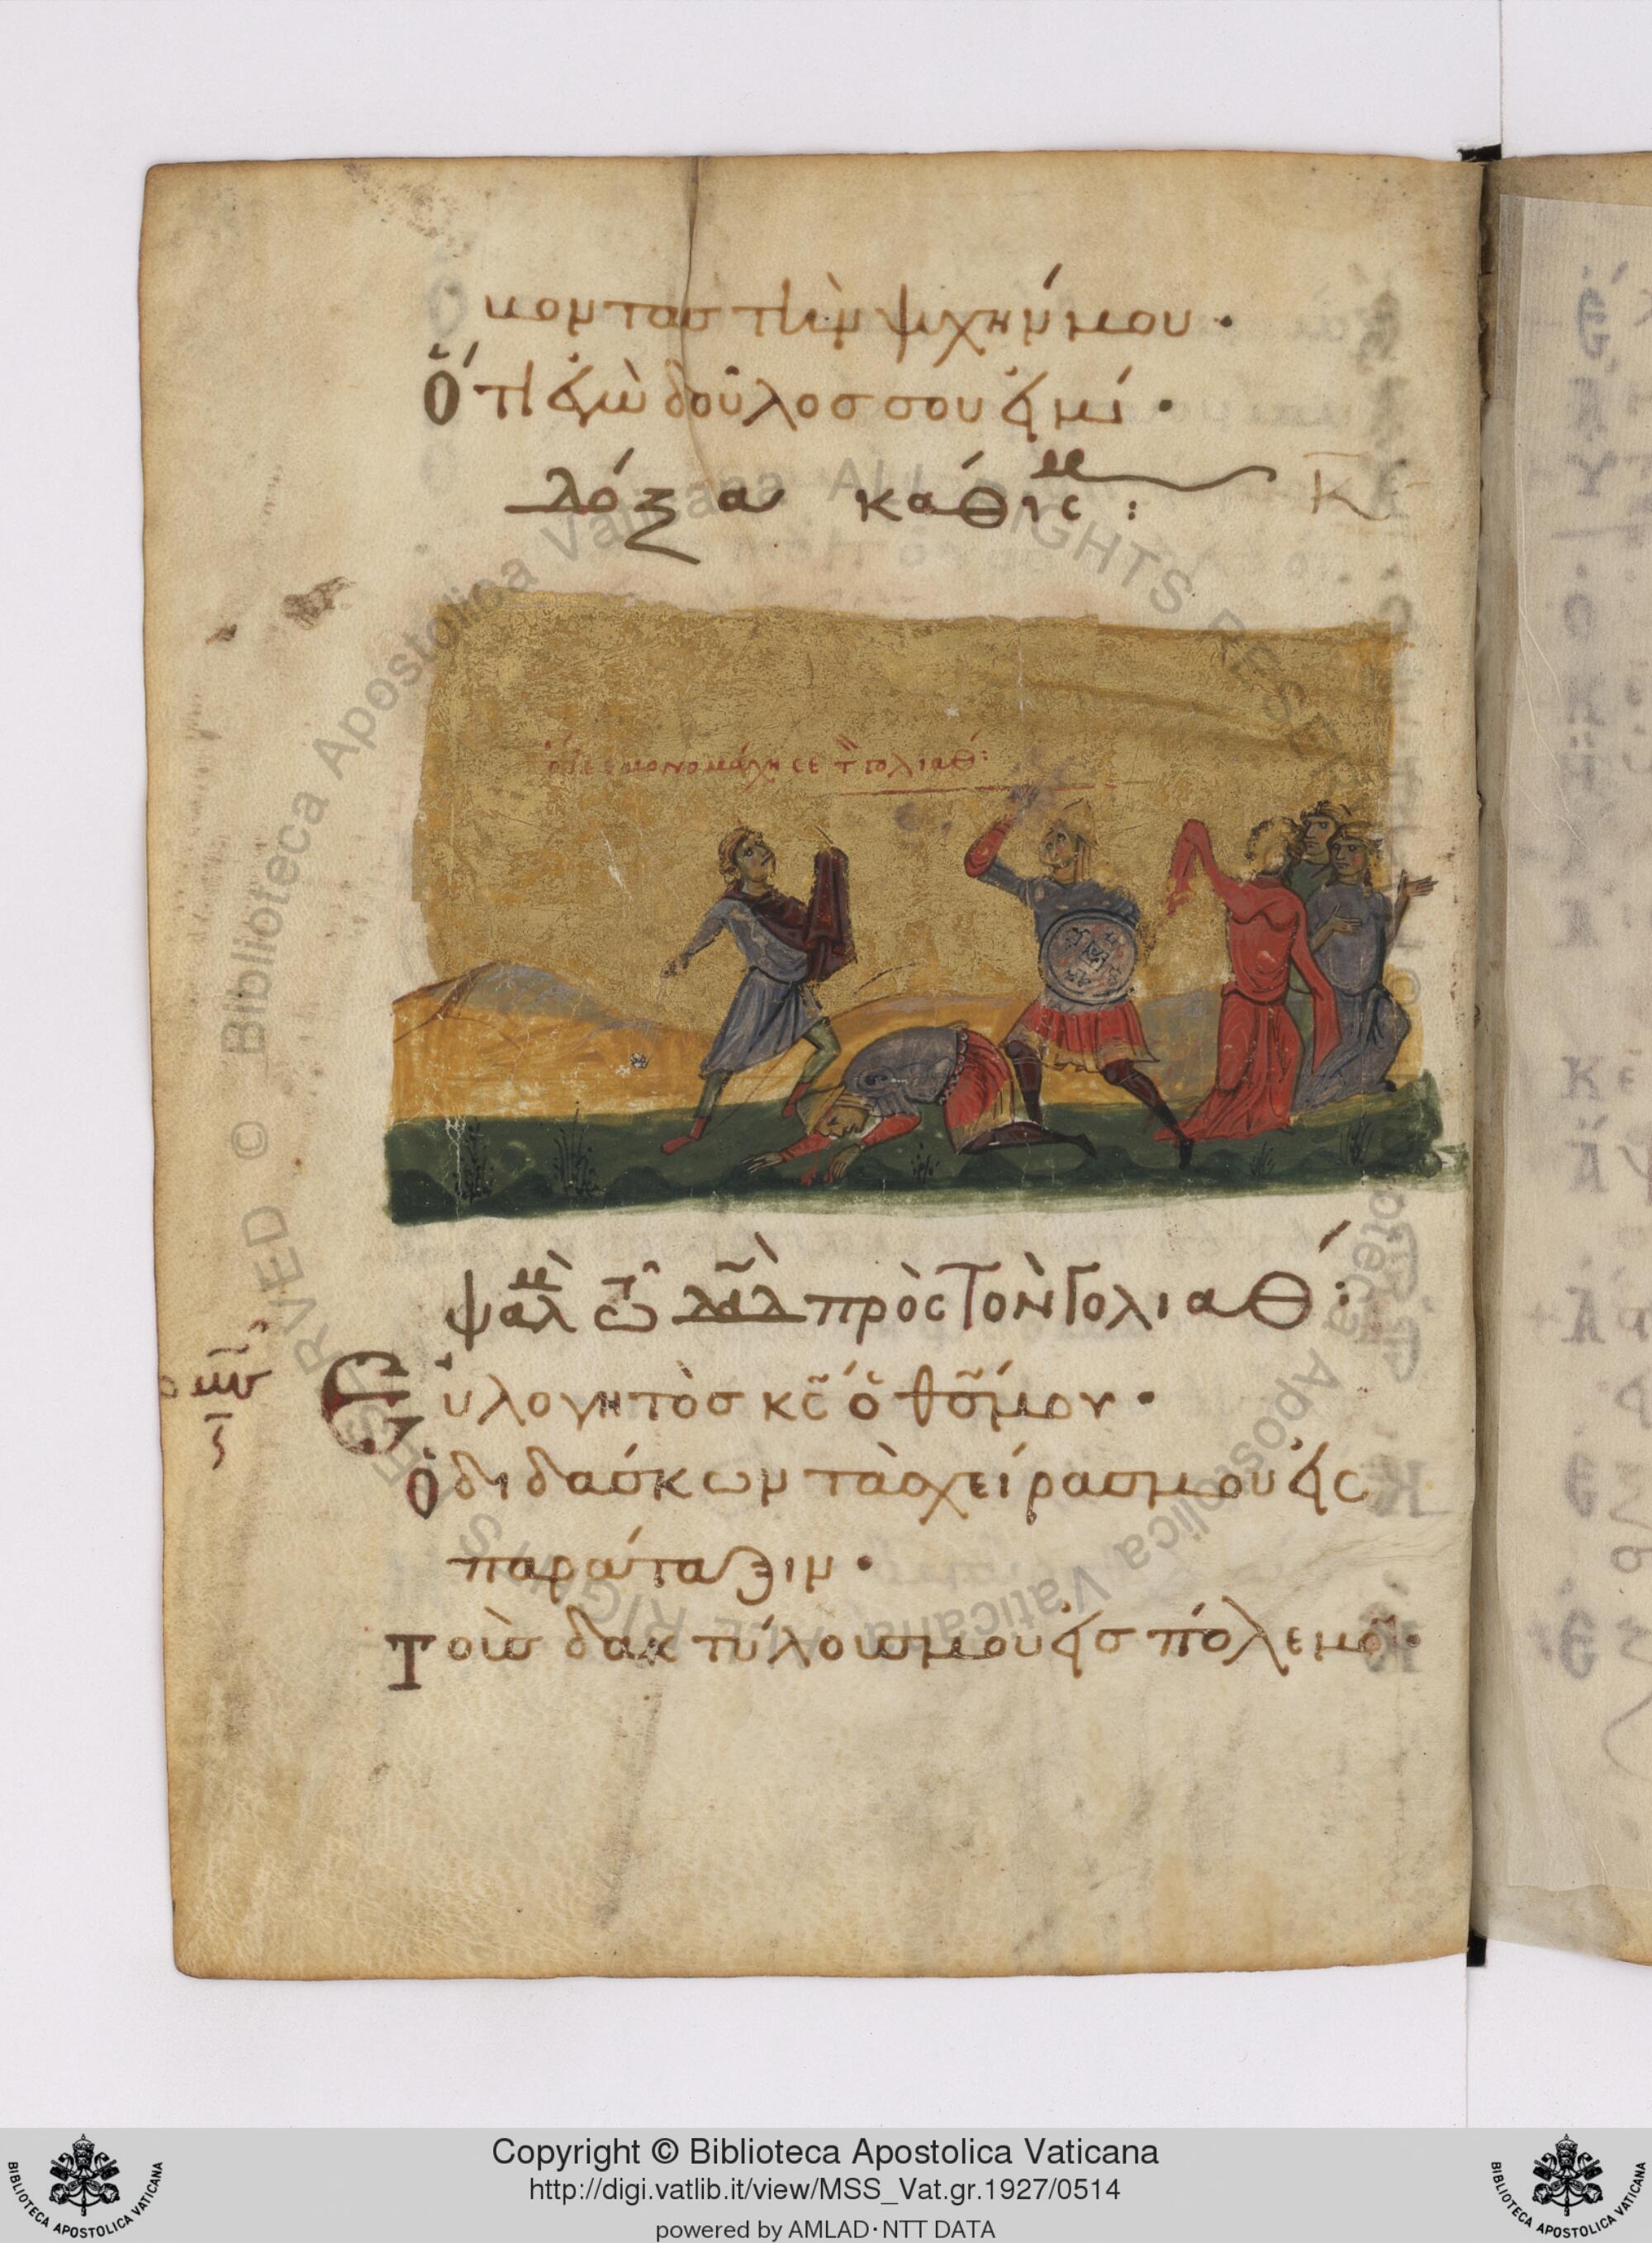 κοντας την ψυχήν μου·
Ὅτι ἐγὼ δοῦλος σου εἰμί·
Δόξα καθις:
ὅτε ἐμονομάχησε τ γολιαθ:
ψαλ τῶ δαδ πρὸς Τὸν Γολιαθ:
Εὐλογητὸς κς ὁ θς μου·
Ὁ διδάσκων τὰς χεῖρας μου εἰς
παράταξιν·
Τοὺς δακτύλους μου εἰς πόλεμον·
Copyright © Biblioteca Apostolica Vaticana
http://digi.vatlib.it/view/MSS_Vat.gr.1927/0514
powered by AMLAD·NTT DATA
BIBLIOTECA APOSTOLICA VATICANA
BIBLIOTECA APOSTOLICA VATICANA